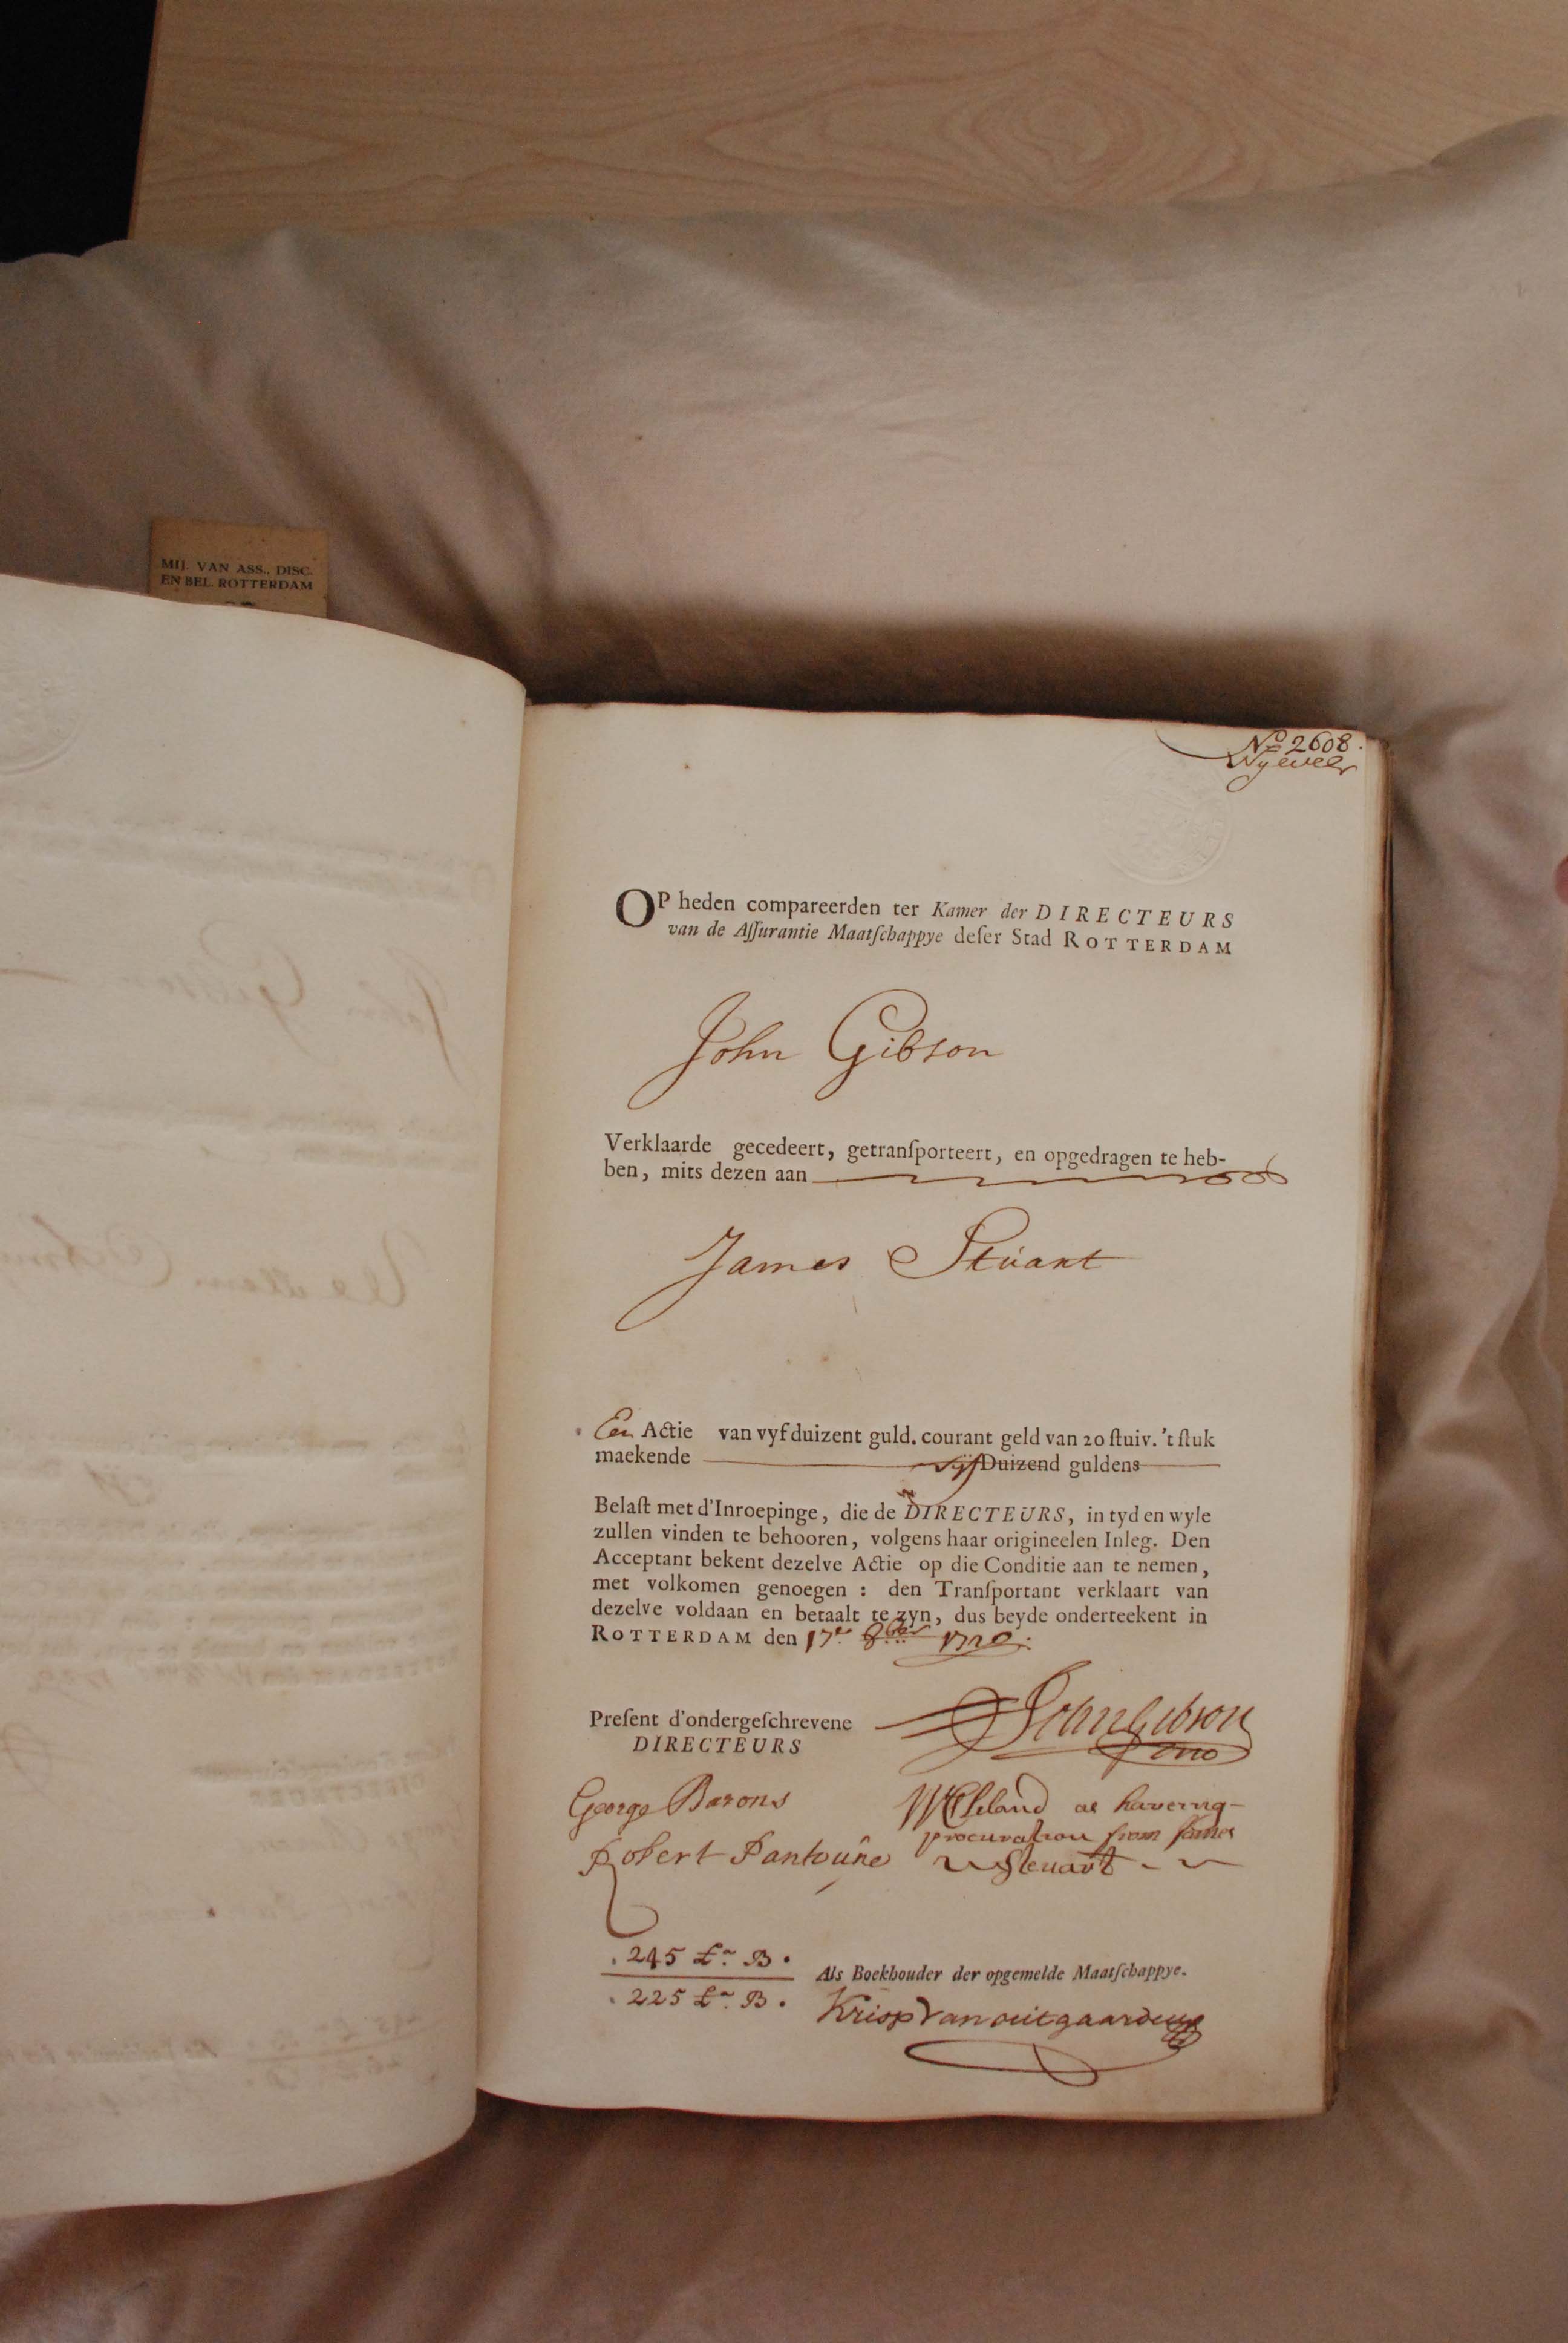 MIJ. VAN ASS., DISC.
EN BEL. ROTTERDAM
No 2608.
Nyevelt
OP heden compareerden ter Kamer der DIRECTEURS
van de Aſſurantie Maatſchappye deſer Stad ROTTERDAM
John Gibson
Verklaarde gecedeert, getranſporteert, en opgedragen te heb-
ben, mits dezen aan
James Stúart
Een Actie van vyf duizent guld. courant geld van 20 ſtuiv. 't ſtuk
maekende vijf Duizend guldens
Belaſt met d'Inroepinge, die de DIRECTEURS, in tyd en wyle
zullen vinden te behooren, volgens haar origineelen Inleg. Den
Acceptant bekent dezelve Actie op die Conditie aan te nemen,
met volkomen genoegen : den Tranſportant verklaart van
dezelve voldaan en betaalt te zyn, dus beyde onderteekent in
ROTTERDAM den 17e 8ber 1720.
Preſent d'ondergeſchrevene
DIRECTEURS
John Gibson
George Barons
Cleland as haveing
procuration from James
Robert Fantoúne
Steuart
245 £ B.
225 £ B.
Als Boekhouder der opgemelde Maatſchappye.
Krisp Van